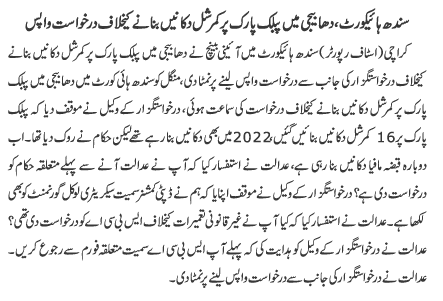 سندھ ہائیکورٹ، دھابیجی میں پبلک پارک پر کمرشل دکانیں بنانے کیخلاف درخواست واپس
کراچی (اسٹاف رپورٹر) سندھ ہائیکورٹ میں آئینی بینچ نے دھابیجی میں پبلک پارک پر کمرشل دکانیں بنانے
کیخلاف درخواستگزار کی جانب سے درخواست واپس لینے پر نمٹا دی، منگل کو سندھ ہائی کورٹ میں دھابیجی میں پبلک
پارک پر کمرشل دکانیں بنانے کیخلاف درخواست کی سماعت ہوئی، درخواستگزار کے وکیل نے موقف دیا کہ پبلک
پارک پر 16 کمرشل دکانیں بنائیں گئیں، 2022 میں بھی دکانیں بنا رہے تھے لیکن حکام نے روک دیا تھا۔ اب
دوبارہ قبضہ مافیا دکانیں بنا رہی ہے، عدالت نے استفسار کیا کہ آپ نے عدالت آنے سے پہلے متعلقہ حکام کو
درخواست دی ہے؟ درخواستگزار کے وکیل نے موقف اپنایا کہ ہم نے ڈپٹی کمشنر سمیت سیکریٹری لوکل گورنمنٹ کو بھی
لکھا ہے۔ عدالت نے استفسار کیا کہ کیا آپ نے غیر قانونی تعمیرات کیخلاف ایس بی سی اے کو درخواست دی تھی؟
عدالت نے درخواستگزار کے وکیل کو ہدایت کی کہ پہلے آپ ایس بی سی اے سمیت متعلقہ فورم سے رجوع کریں۔
عدالت نے درخواستگزار کی جانب سے درخواست واپس لینے پر نمٹا دی۔